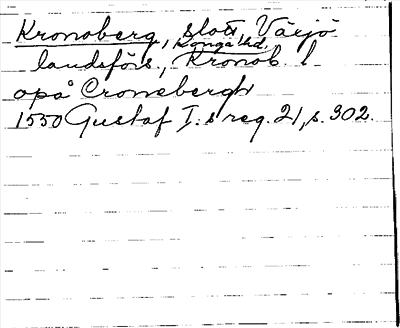 Kronoberg, slott, Växjö
landsförs., Konga hd, Kronob. l
opå Cronebergh
1550 Gustaf I:s reg. 21, s. 302.